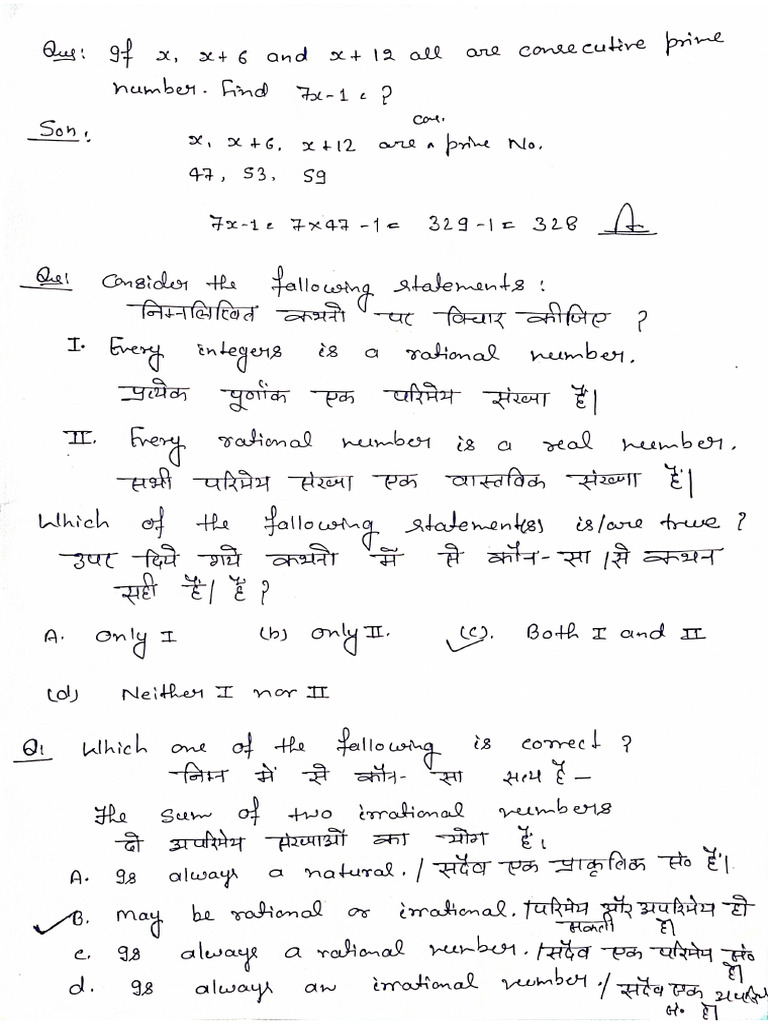 Que: If x, x+6 and x+12 all are consecutive prime
number. Find 7x-1 = ?
Son:
con.
x, x+6, x+12 are ^ prime No.
47, 53, 59
7x-1 = 7×47 -1 = 329-1 = 328 A
Que: Consider the following statements:
निम्नलिखित कथनो पर विचार कीजिए ?
I. Every integers is a rational number.
प्रत्येक पूर्णांक एक परिमेय संख्या है।
II. Every rational number is a real number.
सभी परिमेय संख्या एक वास्तविक संख्या हैं।
Which of the following statement(s) is/are true?
उपर दिये गये कथनो में से कौन-सा/से कथन
सही है/हैं ?
A. Only I (b) Only II. (c). Both I and II
(d) Neither I nor II
Q: Which one of the following is correct ?
निम्न में से कौन-सा सत्य है -
The sum of two irrational numbers
दो अपरिमेय संख्याओं का योग है।
A. Is always a natural. / सदैव एक प्राकृतिक सं० है।
B. May be rational or irrational. / परिमेय और अपरिमेय हो
सकती है।
c. Is always a rational number. / सदैव एक परिमेय सं०
है।
d. Is always an irrational number. / सदैव एक अपरिमेय
सं. है।